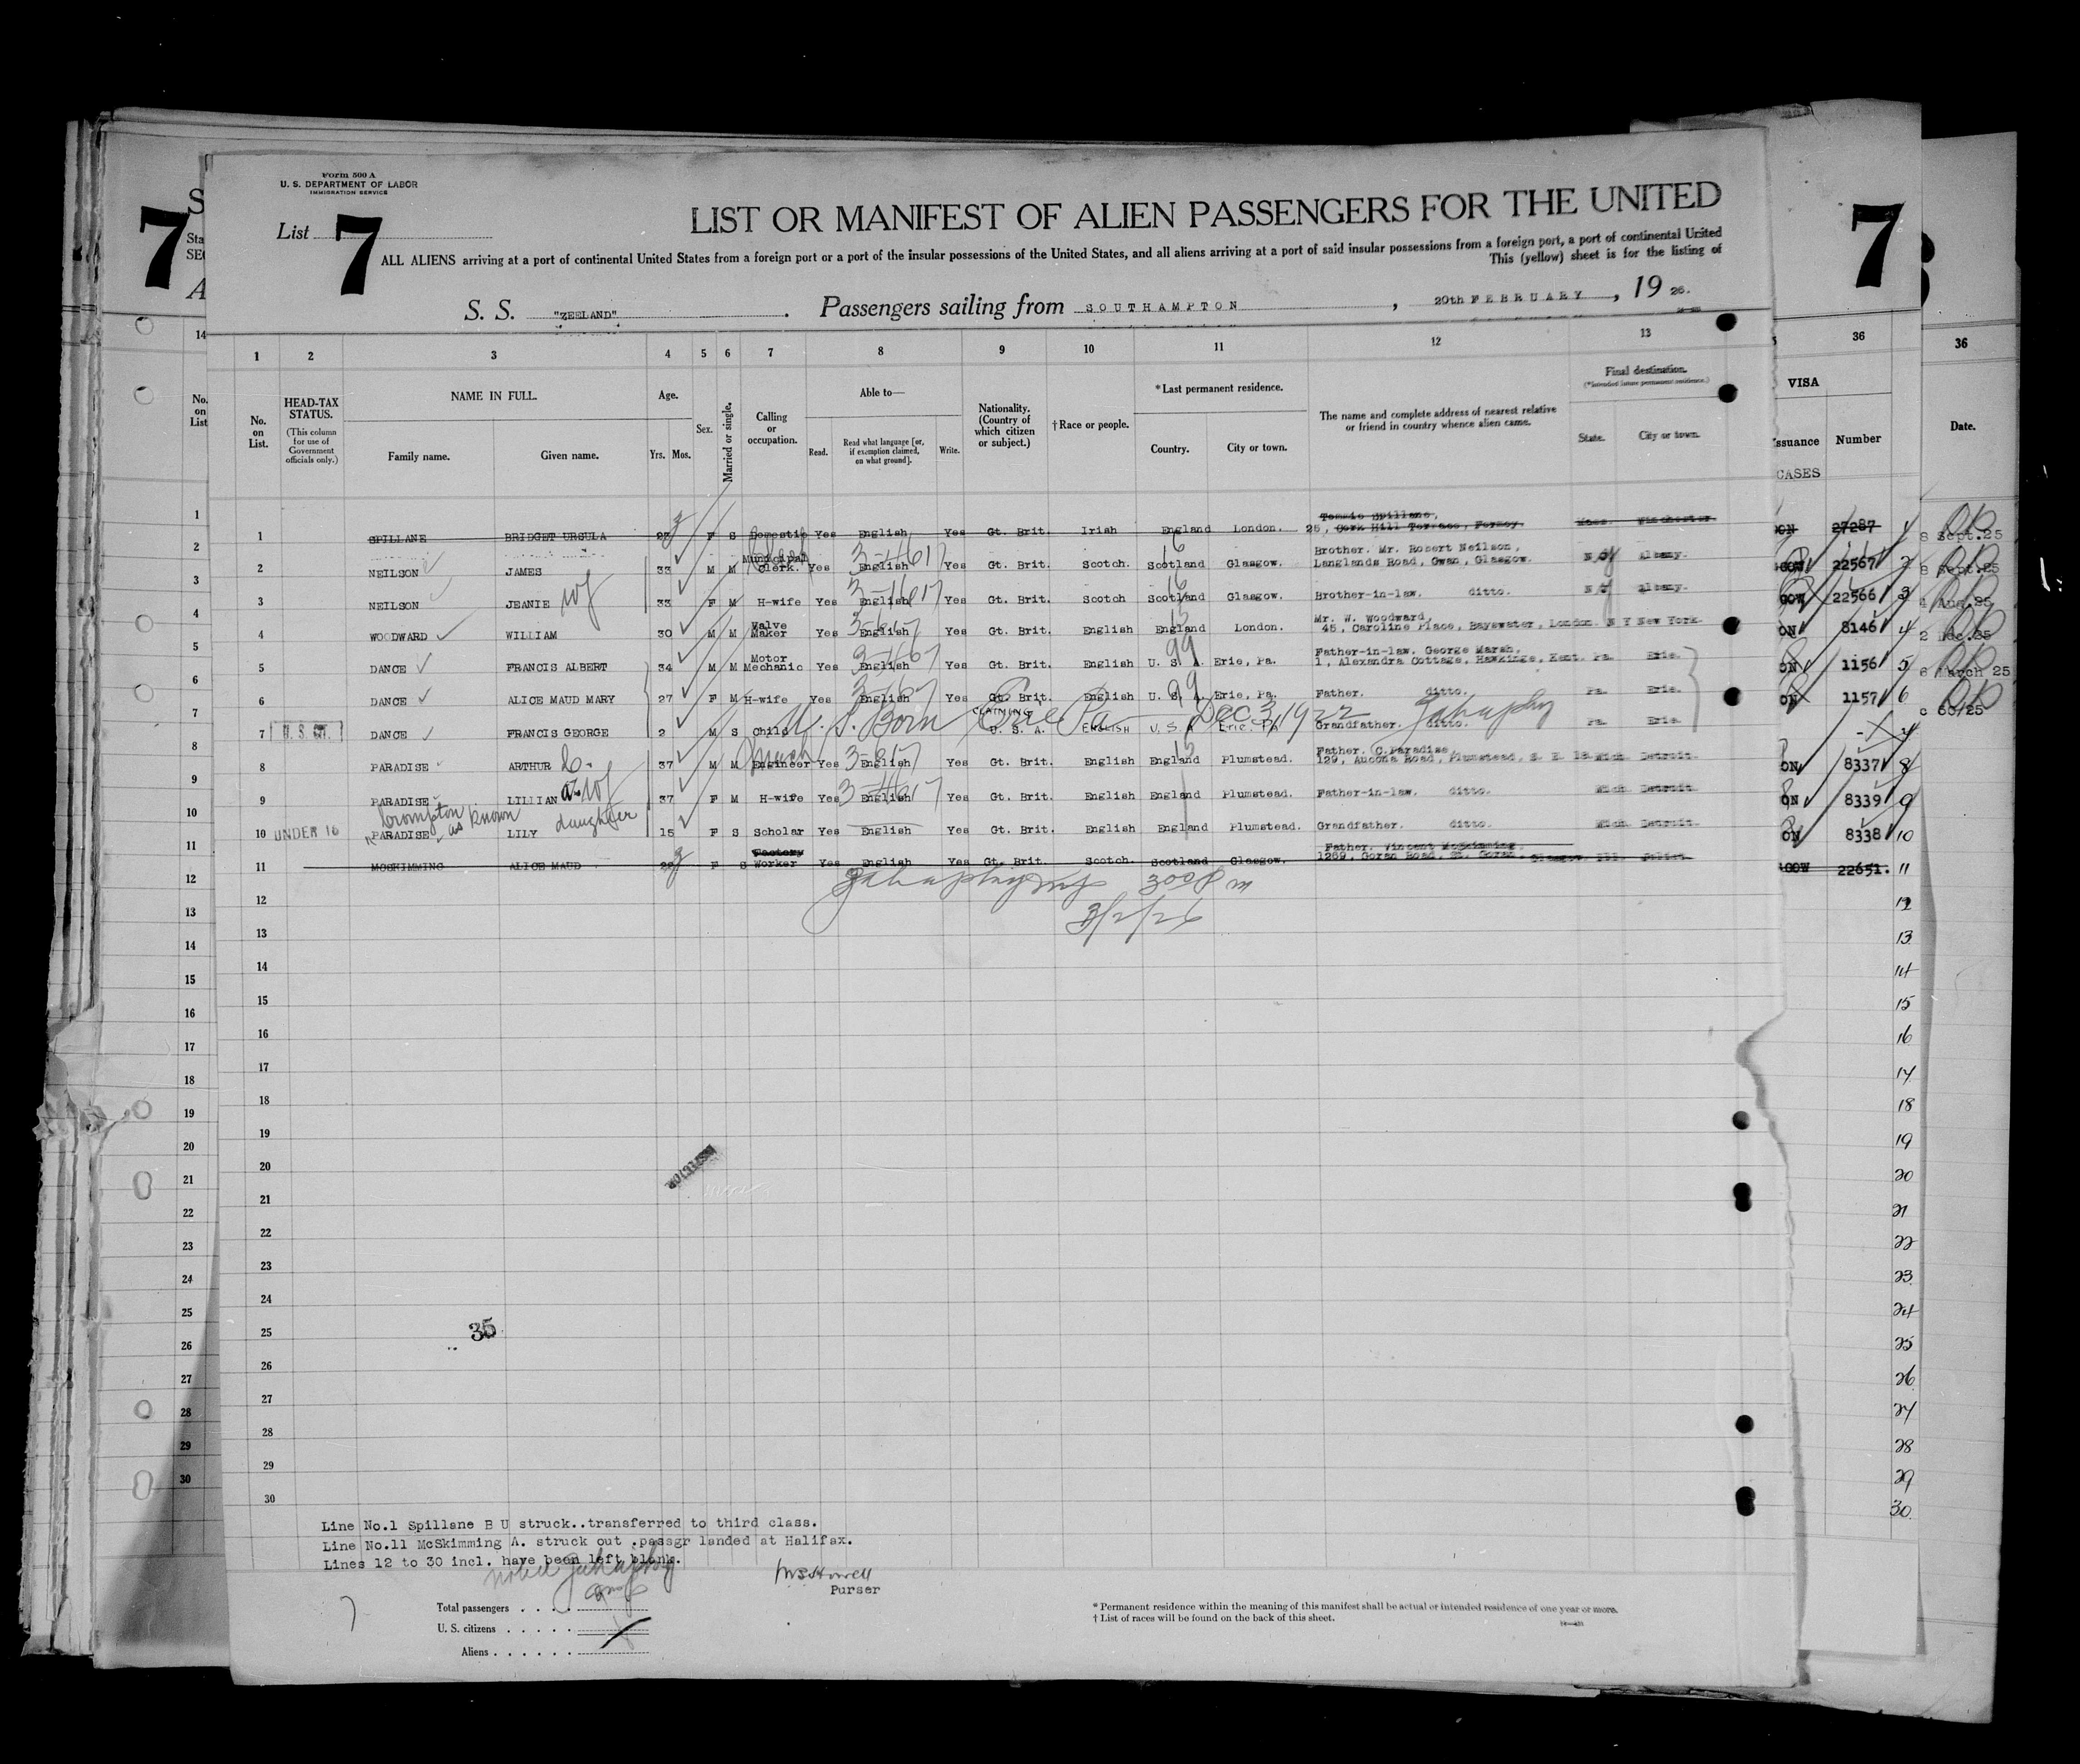 Form 500 A
U. S. DEPARTMENT OF LABOR
IMMIGRATION SERVICE
List 7
LIST OR MANIFEST OF ALIEN PASSENGERS FOR THE UNITED
ALL ALIENS arriving at a port of continental United States from a foreign port or a port of the insular possessions of the United States, and all aliens arriving at a port of said insular possessions from a foreign port, a port of continental United
This (yellow) sheet is for the listing of
S. S. "ZEELAND". Passengers sailing from SOUTHAMPTON, 20th FEBRUARY, 19 26.
7 7
1 2 3 4 5 6 7 8 9 10 11 12 13 36 36
No. on List.
HEAD-TAX STATUS.
(This column for use of Government officials only.)
NAME IN FULL.
Family name. Given name.
Age.
Yrs. Mos.
Sex.
Married or single.
Calling or occupation.
Able to—
Read. Read what language [or, if exemption claimed, on what ground]. Write.
Nationality. (Country of which citizen or subject.)
†Race or people.
*Last permanent residence.
Country. City or town.
The name and complete address of nearest relative or friend in country whence alien came.
Final destination.
(*Intended future permanent residence.)
State. City or town.
VISA
Issuance Number Date.
CASES
1 SPILLANE BRIDGET URSULA F S Domestic Yes English Yes Gt. Brit. Irish England London. Tommie Spillane, 25, Cork Hill Terrace, Fermoy. Mass. Winchester 27287 1
2 NEILSON JAMES 33 M M Municipal Clerk. Yes English Yes Gt. Brit. Scotch. Scotland Glasgow. Brother. Mr. Robert Neilson, Langlands Road, Gwan, Glasgow. N Y Albany. 22567 2 8 Sept.25
3 NEILSON JEANIE wf 33 F M H-wife Yes English Yes Gt. Brit. Scotch Scotland Glasgow. Brother-in-law. ditto. N Y Albany. 22566 3 8 Sept.25
4 WOODWARD WILLIAM 30 M M Valve Maker Yes English Yes Gt. Brit. English England London. Mr. W. Woodward, 45, Caroline Place, Bayswater, London. N Y New York. 8146 4
5 DANCE FRANCIS ALBERT 34 M M Motor Mechanic Yes English Yes Gt. Brit. English U. S. A. Erie, Pa. Father-in-law. George Marsh, 1, Alexandra Cottage, Hawkinge, Kent. Pa. Erie. 1156 5
6 DANCE ALICE MAUD MARY 27 F M H-wife Yes English Yes Gt. Brit. English U. S. A. Erie, Pa. Father. ditto. Pa. Erie. 1157 6
U. S. Born Erie Pa Dec 3 1922
7 U. S. CIT. DANCE FRANCIS GEORGE 2 M S Child CLAIMING U. S. A. ENGLISH U. S. A. Erie. Pa Grandfather. ditto. Pa. Erie.
8 PARADISE ARTHUR 37 M M Engineer Yes English Yes Gt. Brit. English England Plumstead. Father. C.Paradise, 129, Ancona Road, Plumstead, S. E. 18. Mich. Detroit. 8337 8
9 PARADISE LILLIAN wf 37 F M H-wife Yes English Yes Gt. Brit. English England Plumstead. Father-in-law. ditto. Mich. Detroit 8339 9
Crompton as known daughter
10 UNDER 16 PARADISE LILY 15 F S Scholar Yes English Yes Gt. Brit. English England Plumstead. Grandfather. ditto. Mich. Detroit. 8338 10
11 MCSKIMMING ALICE MAUD F S Factory Worker Yes English Yes Gt. Brit. Scotch. Scotland Glasgow. Father. Vincent McSkimming 1269, Goran Road, St. Goran, Glasgow. Ill. Joliet. 22651. 11
300 P m
3/2/26
12
13
14
15
16
17
18
19
20
INSPECTOR
21
22
23
24
25
35
26
27
28
29
30
Line No.1 Spillane B U struck..transferred to third class.
Line No.11 McSkimming A. struck out .passgr landed at Halifax.
Lines 12 to 30 incl. have been left blank.
Purser
Total passengers
U. S. citizens
Aliens
* Permanent residence within the meaning of this manifest shall be actual or intended residence of one year or more.
† List of races will be found on the back of this sheet.